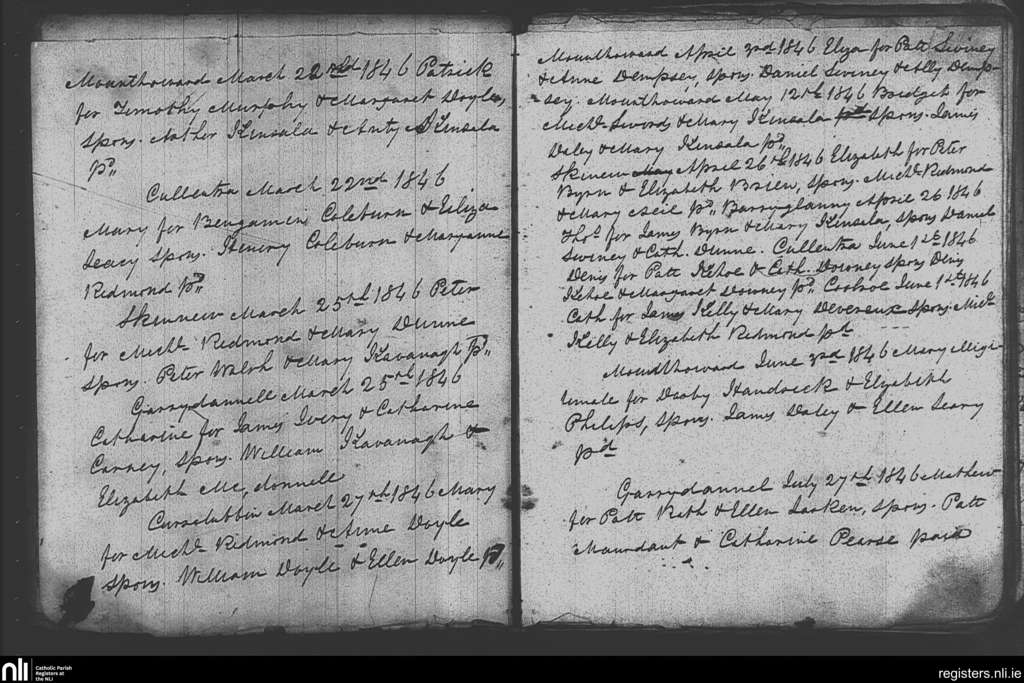 Mounthoward March 22nd 1846 Patrick
for Timothy Murphy & Margaret Doyle,
Spons. Arther Kinsala & Anty Kinsala
pd,,
Cullentra March 22nd 1846
Mary for Bengamen Coleburn & Eliza
Leacy Spons. Heniry Coleburn & Maryanne
Redmond pd,,
Skinnew March 25th 1846 Peter
for Michl. Redmond & Mary Dunne
Spons. Peter Walsh & Mary Kavanagh pd,,
Garrydannell March 25th 1846
Catharine for James Ivory & Catharine
Carney, Spons. William Kavanagh &
Elizabeth Mc,donnell
March 27th 1846 Mary
for Michl. Redmond & Anne Doyle
Spons. William Doyle & Ellen Doyle pd,,
Mounthoward April 3rd 1846 Eliza for Patt Siviney
& Anne Dempsey, spons. Daniel Siviney & Ally Demp-
sey. Mounthoward May 12th 1846 Bridget for
Michl. Swords & Mary Kinsala Spons. James
Daley & Mary Kinsala pd,,
Skinnew May April 26th 1846 Elizabeth for Peter
Byrn & Elizabeth Brien, spons. Michl. Redmond
& Mary Neil pd,, Barryglanny April 26 1846
Thos. for James Byrn & Mary Kinsala, Spons Daniel
Siviney & Cath. Dunne. Cullentra June 1st 1846
Denis for Patt Kehoe & Cath. Downey Spons Denis
Kehoe & Margaret Downey pd,, Coolroe June 1st 1846
Cath. for James Kelly & Mary Devereux Spons. Michl.
Kelly & Elizabeth Redmond pd
Mounthoward June 3rd 1846 Mary Miligi-
timate for Darby Handrick & Elizabeth
Philips, Spons. James Daley & Ellen Leary
pd
Garrydannel July 27th 1846 Mathew
for Patt Rath & Ellen Larken, Spons. Patt
Maurdaut & Catharine Pearse paid
nli
Catholic Parish
Registers at
the NLI
registers.nli.ie